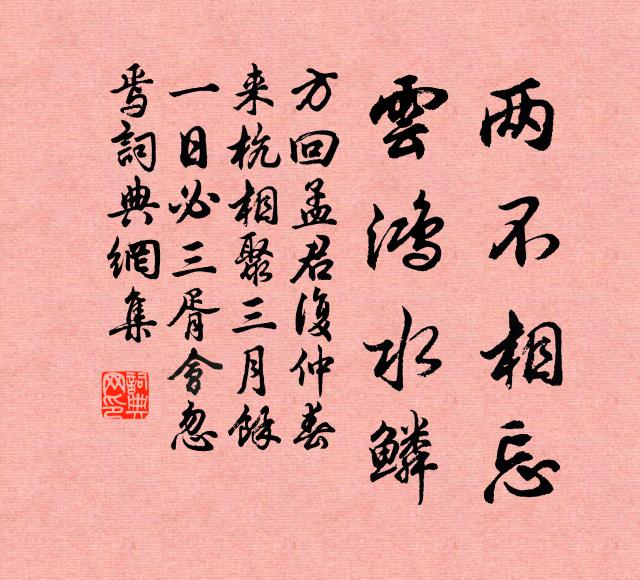 两不相忘
雲鴻水鱗
方回孟君復仲春
来杭相聚三月餘
一日必三胥會忽
焉詞典網集
詞典
网印